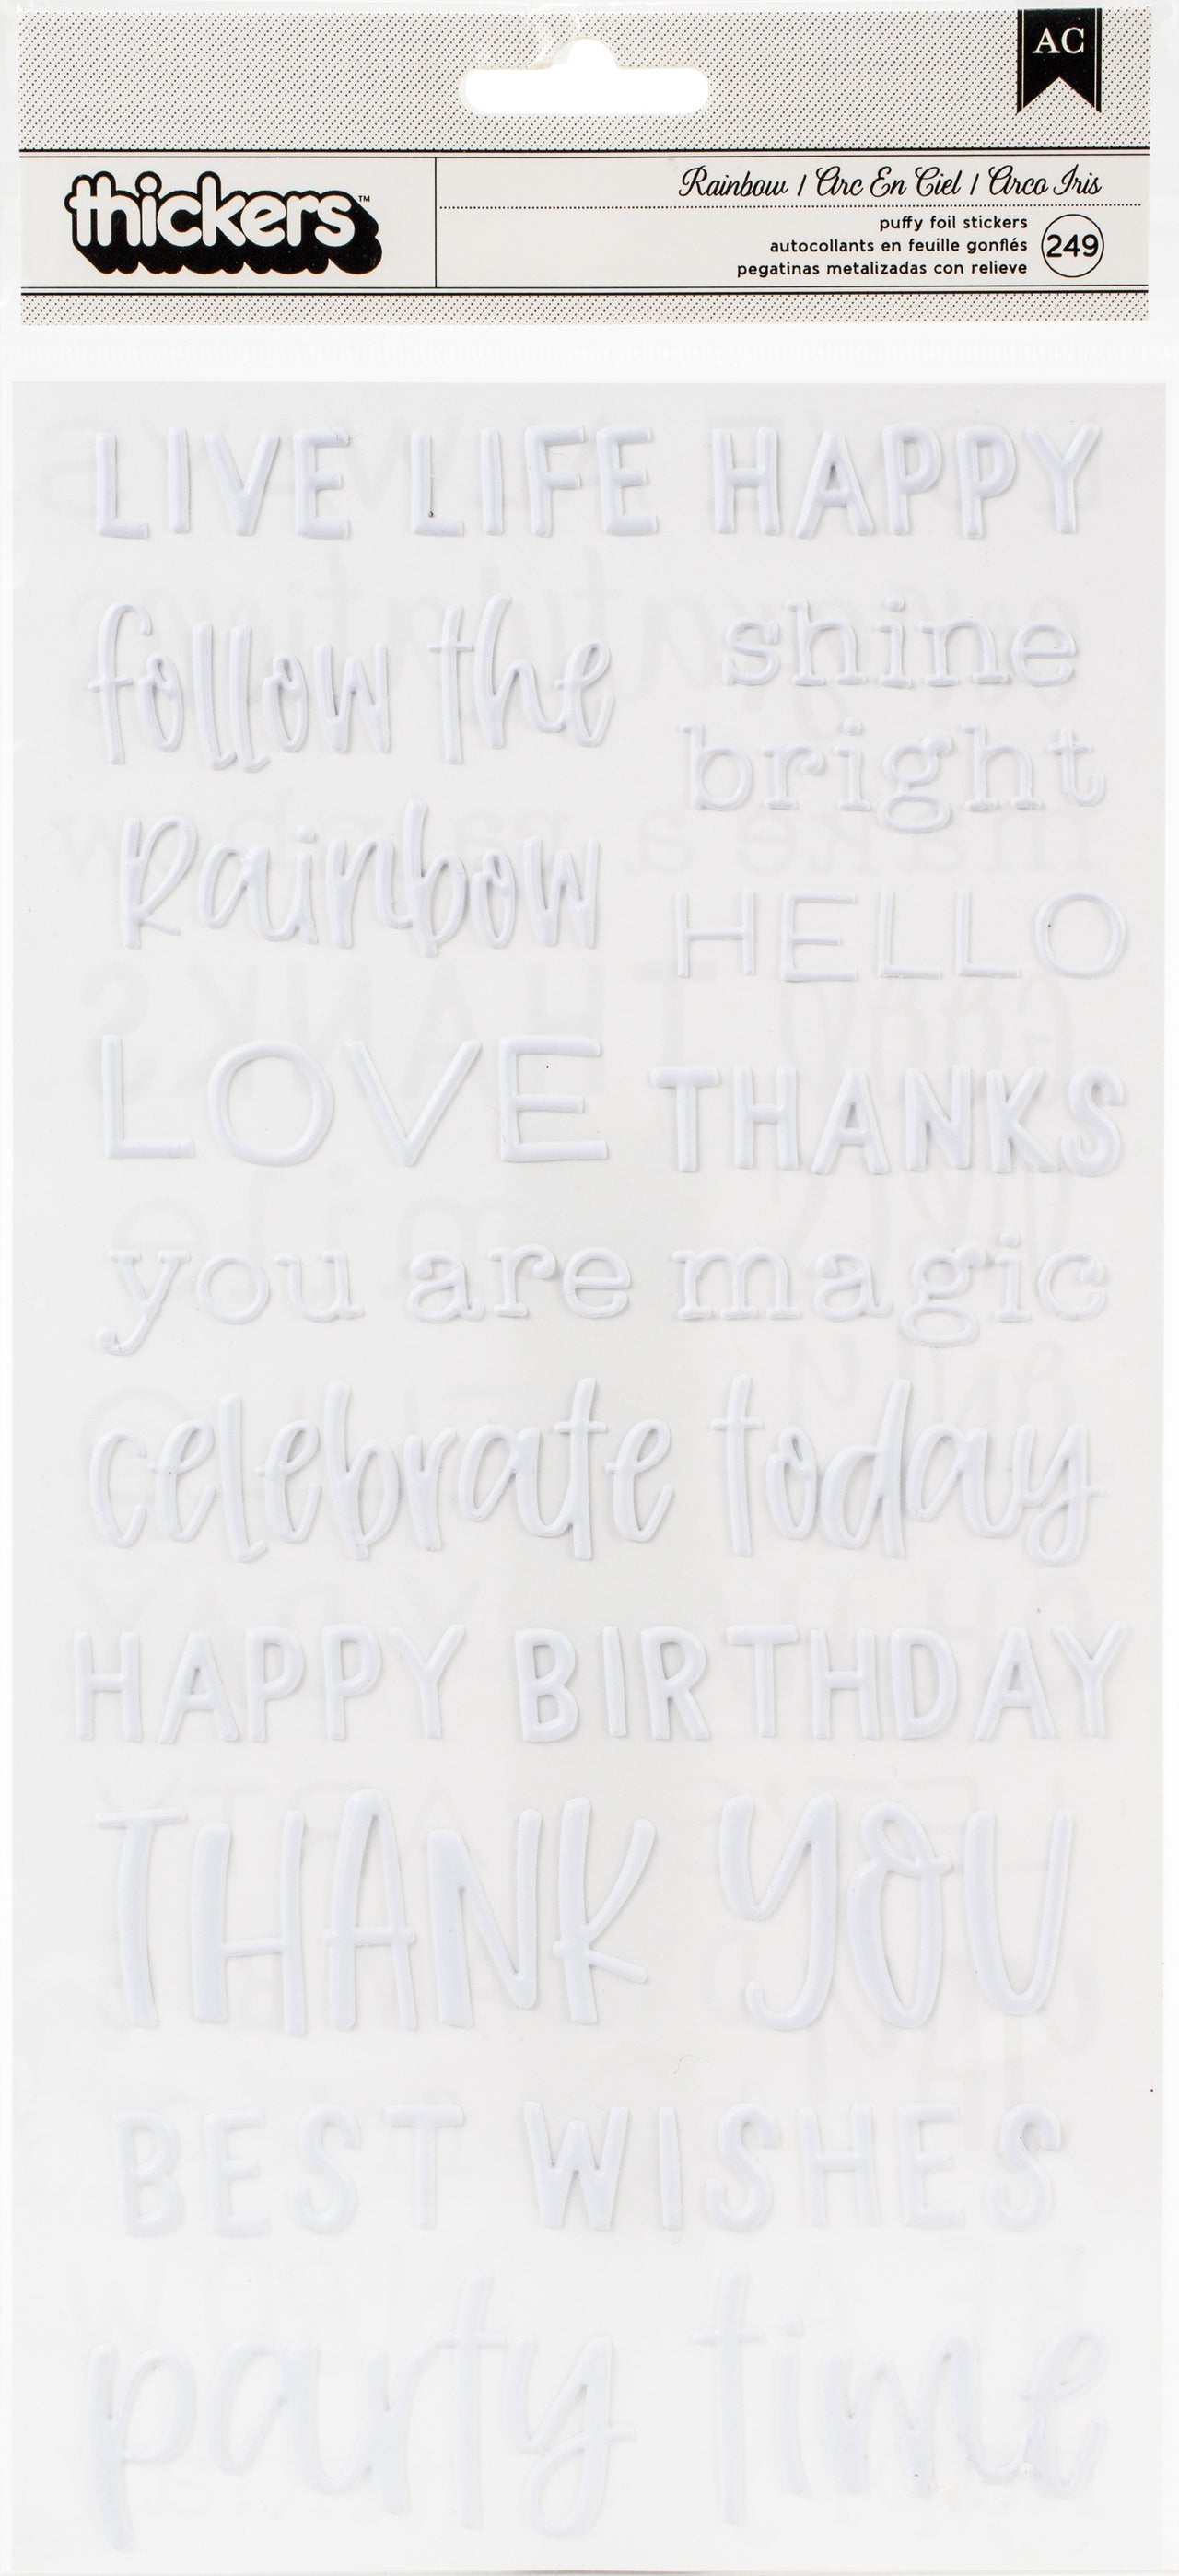 AC
thickers™
Rainbow / Arc En Ciel / Arco Iris
puffy foil stickers
autocollants en feuille gonflés
pegatinas metalizadas con relieve
249
LIVE LIFE HAPPY
follow the
Rainbow
shine
bright
HELLO
LOVE
THANKS
you are magic
celebrate today
HAPPY BIRTHDAY
THANK YOU
BEST WISHES
party time